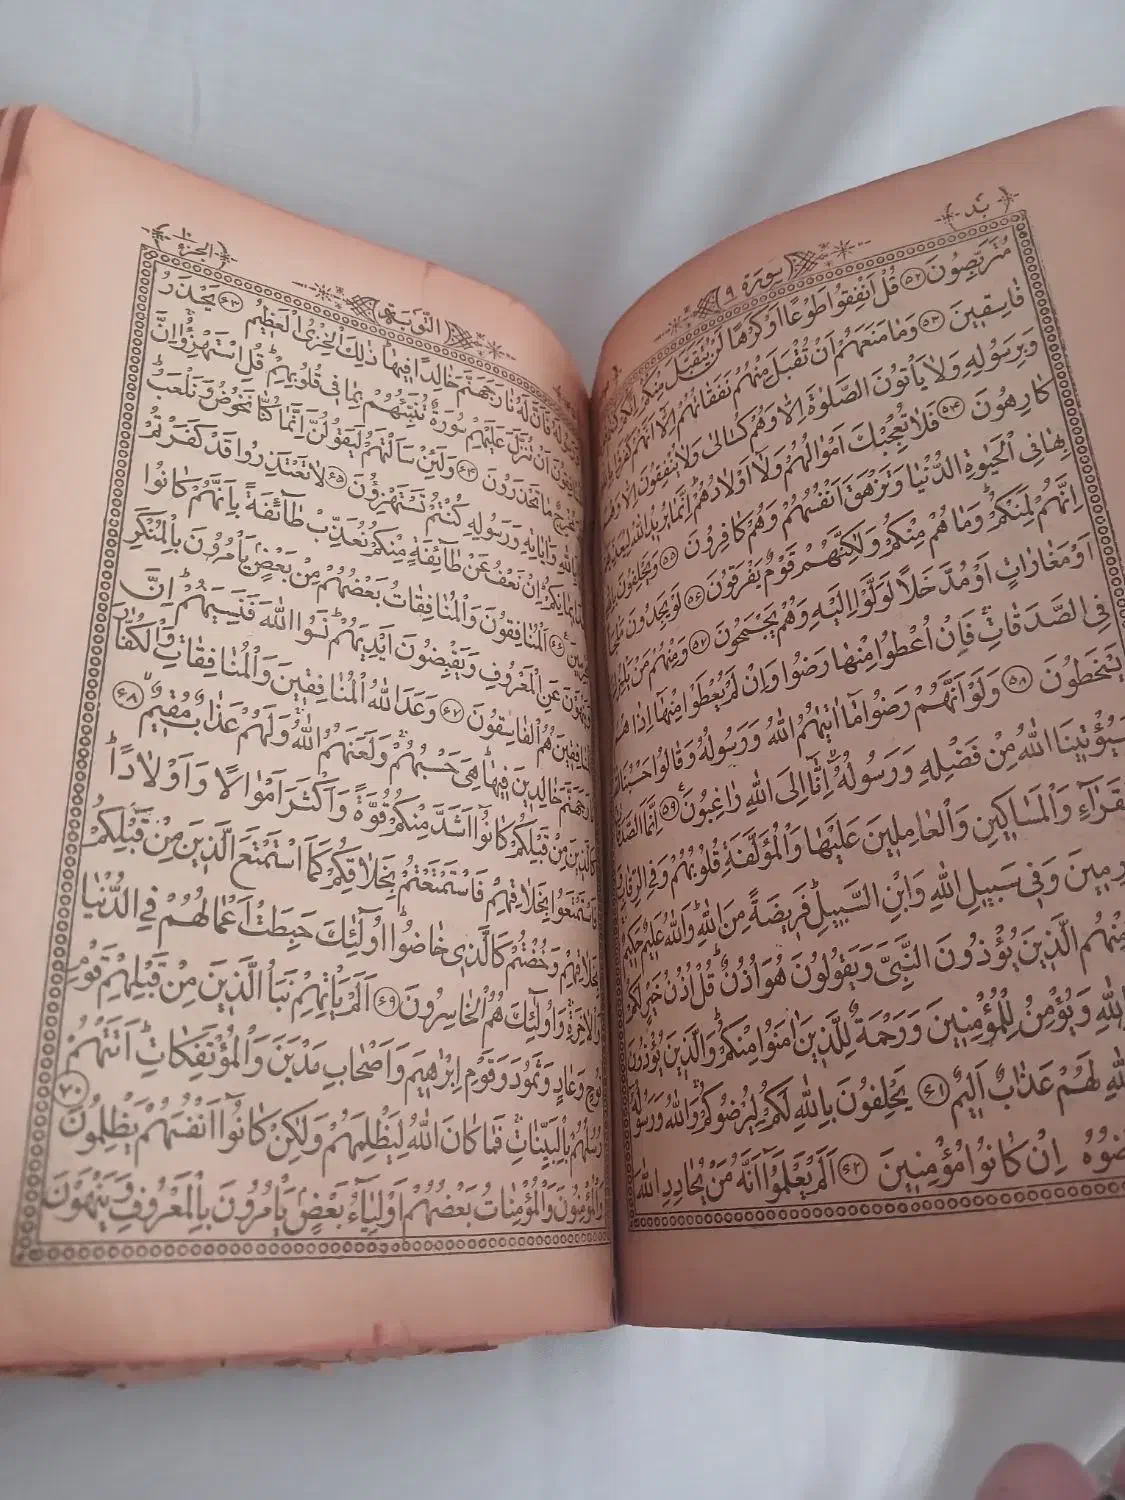 بد
سورة ٩
متربصون ٥٢ قل انفقوا طوعا او كرها لن يتقبل منكم
فاسقين ٥٣ وما منعهم ان تقبل منهم نفقاتهم الا انهم كفروا
وبرسوله ولا يأتون الصلوة الا وهم كسالى ولا ينفقون الا وهم
كارهون ٥٤ فلا تعجبك اموالهم ولا اولادهم انما يريد الله ليعذبهم
بها في الحيوة الدنيا وتزهق انفسهم وهم كافرون ٥٥ ويحلفون بالله
انهم لمنكم وما هم منكم ولكنهم قوم يفرقون ٥٦ لو يجدون ملجأ
او مغارات او مدخلا لولوا اليه وهم يجمحون ٥٧ ومنهم من يلمزك
في الصدقات فان اعطوا منها رضوا وان لم يعطوا منها اذا هم
يسخطون ٥٨ ولو انهم رضوا ما اتيهم الله ورسوله وقالوا حسبنا الله
سيؤتينا الله من فضله ورسوله انا الى الله راغبون ٥٩ انما الصدقات
للفقراء والمساكين والعاملين عليها والمؤلفة قلوبهم وفي الرقاب
والغارمين وفي سبيل الله وابن السبيل فريضة من الله والله عليم حكيم
ومنهم الذين يؤذون النبي ويقولون هو اذن قل اذن خير لكم
بالله ويؤمن للمؤمنين ورحمة للذين امنوا منكم والذين يؤذون
الله لهم عذاب اليم ٦١ يحلفون بالله لكم ليرضوكم والله ورسوله
يرضوه ان كانوا مؤمنين ٦٢ الم يعلموا انه من يحادد الله
الجزء ١٠
التوبة
ورسوله فان له نار جهنم خالدا فيها ذلك الخزي العظيم ٦٣ يحذر
المنافقون ان تنزل عليهم سورة تنبئهم بما في قلوبهم قل استهزؤا ان
الله مخرج ما تحذرون ٦٤ ولئن سألتهم ليقولن انما كنا نخوض ونلعب
قل ابالله واياته ورسوله كنتم تستهزؤن ٦٥ لا تعتذروا قد كفرتم
بعد ايمانكم ان نعف عن طائفة منكم نعذب طائفة بانهم كانوا
مجرمين ٦٦ المنافقون والمنافقات بعضهم من بعض يأمرون بالمنكر
وينهون عن المعروف ويقبضون ايديهم نسوا الله فنسيهم ان
المنافقين هم الفاسقون ٦٧ وعد الله المنافقين والمنافقات والكفار
نار جهنم خالدين فيها هي حسبهم ولعنهم الله ولهم عذاب مقيم ٦٨
كالذين من قبلكم كانوا اشد منكم قوة واكثر اموالا واولادا
فاستمتعوا بخلاقهم فاستمتعتم بخلاقكم كما استمتع الذين من قبلكم
بخلاقهم وخضتم كالذي خاضوا اولئك حبطت اعمالهم في الدنيا
والاخرة واولئك هم الخاسرون ٦٩ الم يأتهم نبأ الذين من قبلهم قوم
نوح وعاد وثمود وقوم ابرهيم واصحاب مدين والمؤتفكات اتتهم
رسلهم بالبينات فما كان الله ليظلمهم ولكن كانوا انفسهم يظلمون ٧٠
والمؤمنون والمؤمنات بعضهم اولياء بعض يأمرون بالمعروف وينهون